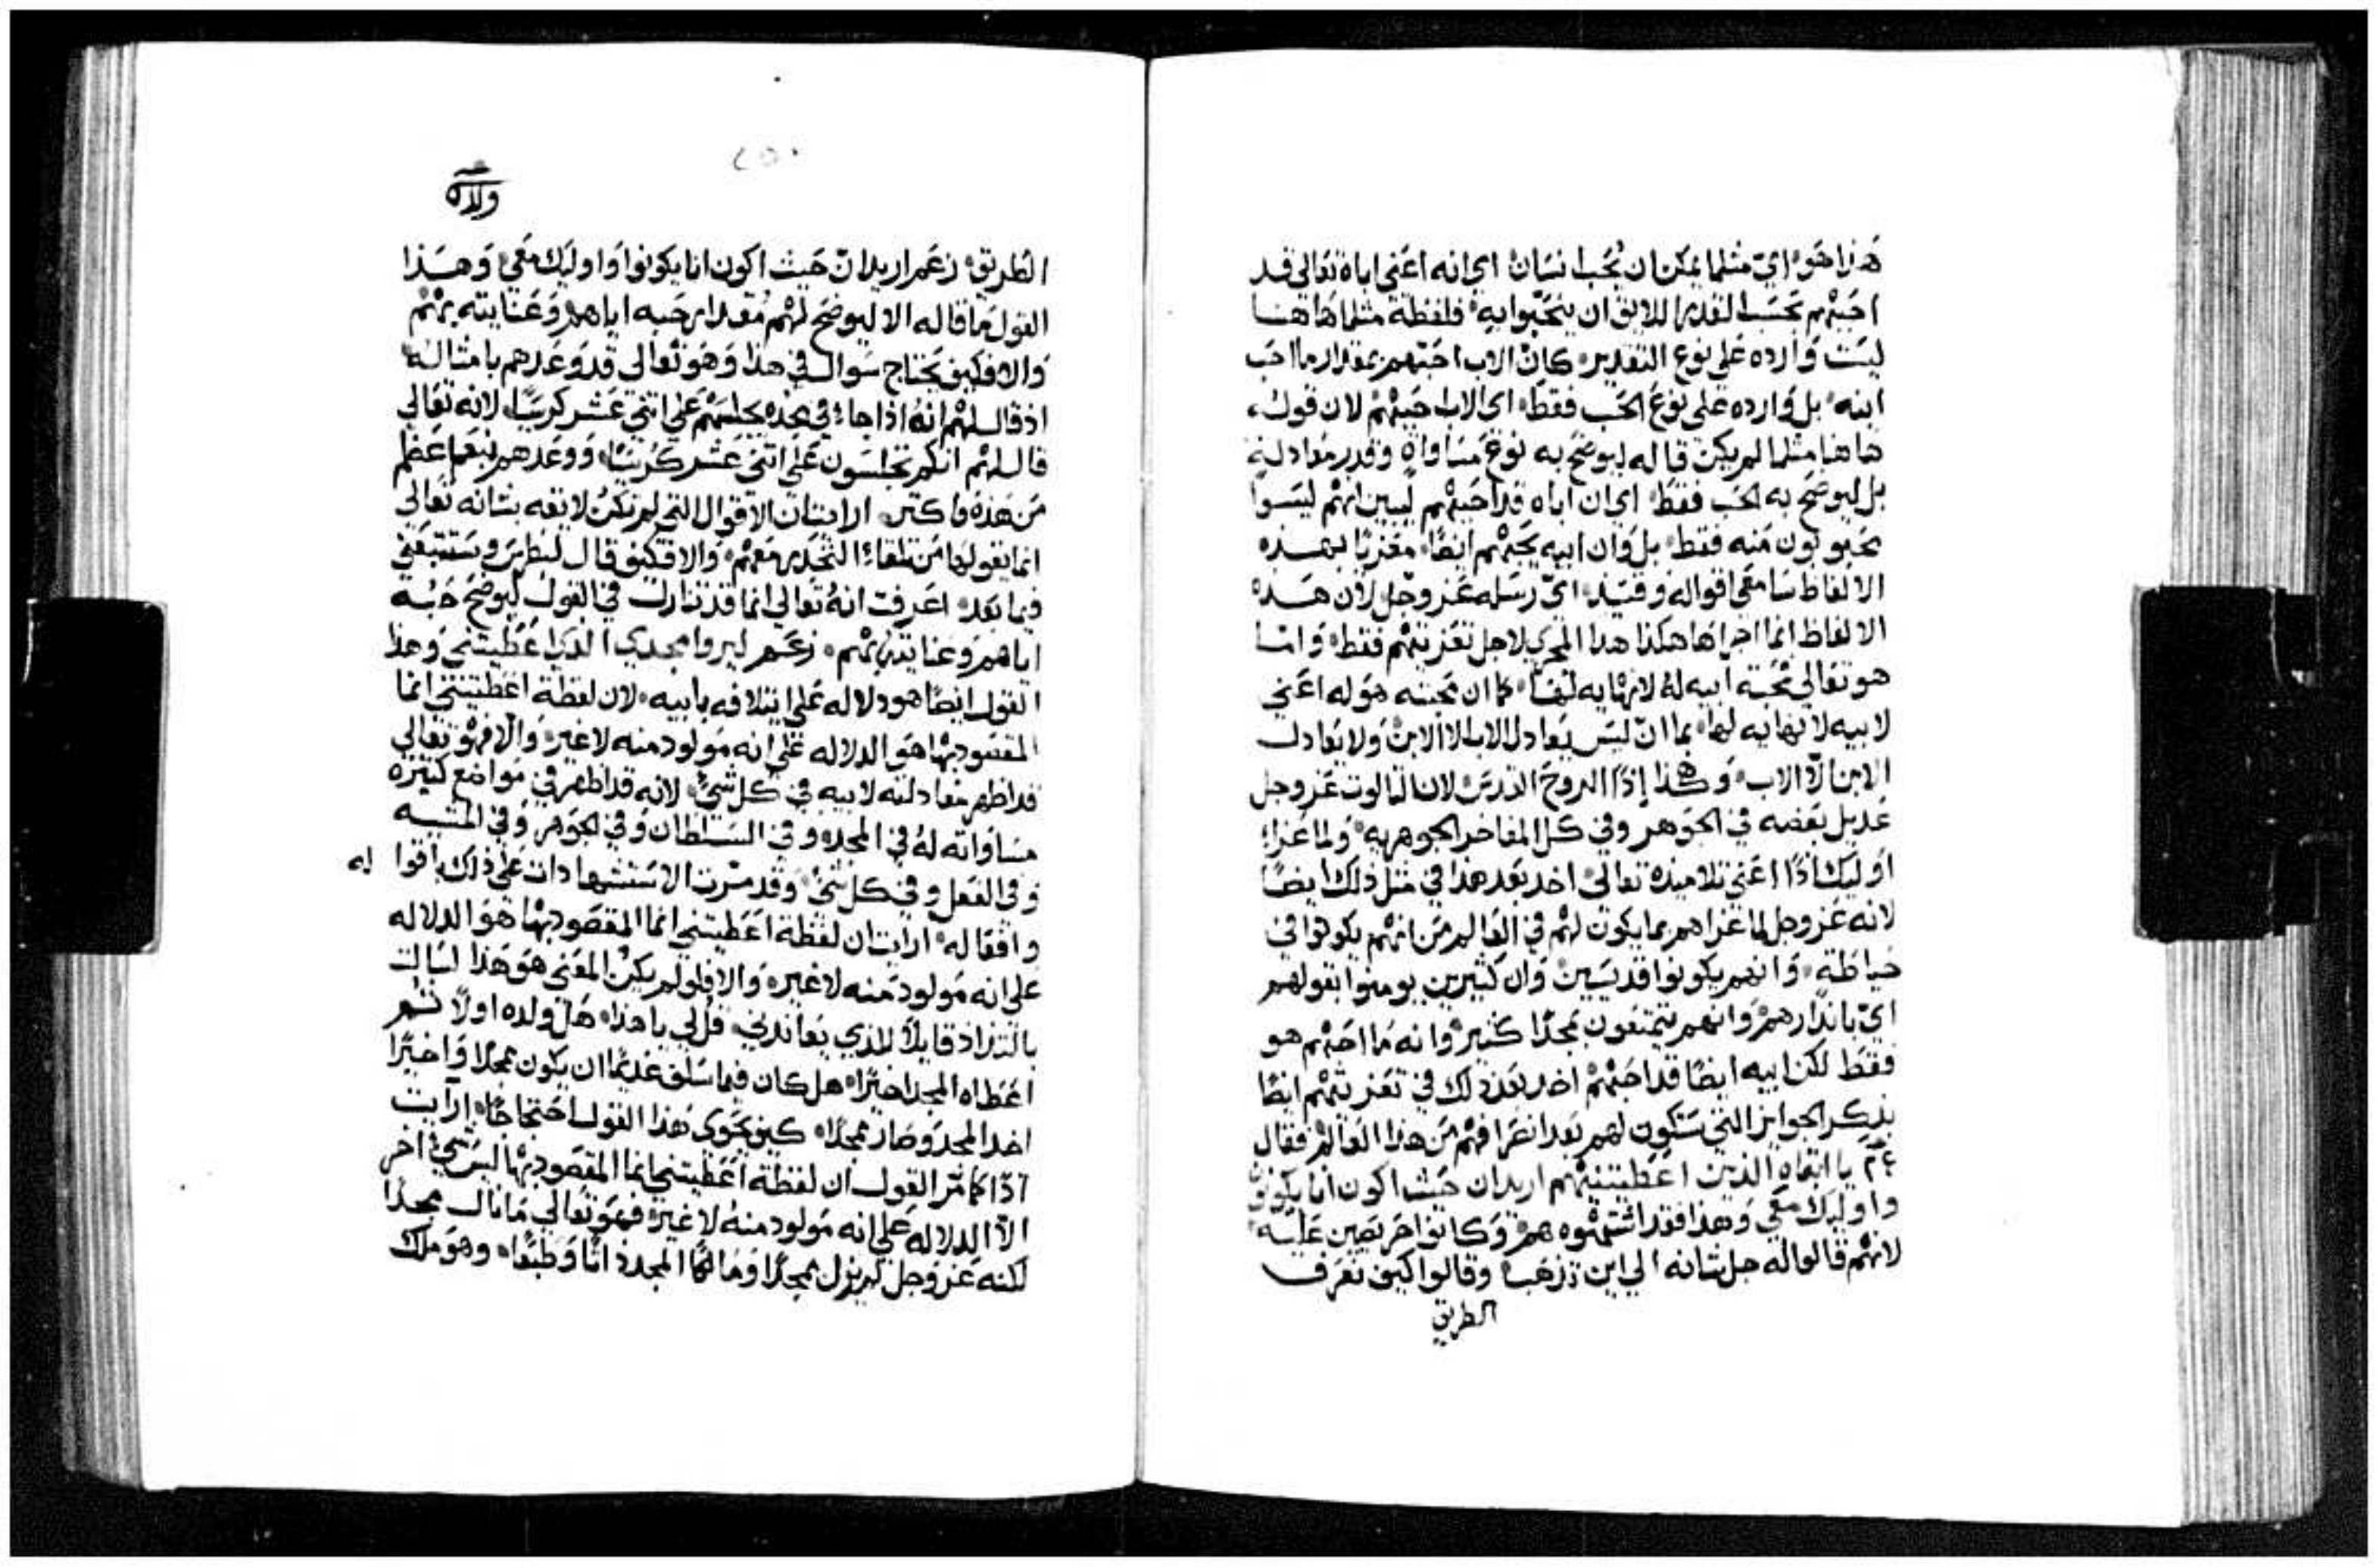 هذا هو اي مثلما يمكن ان يحب انسان اي انه اعني اباه تعالى قد
احبهم بحسب القدر اللايق ان يتحبوا به فلفظة مثلما هاهنا
ليست وارده على نوع التقدير كان الاب احبهم بمقدار ما احب
ابنه بل وارده على نوع الحب فقط اي الاب حبهم لان قوله
هاهنا مثلما لم يكن قاله ليوضح به نوع مساواة وقدر معادلة
بل ليوضح به الحب فقط اي ان اباه قد احبهم ليبين انهم ليسوا
محبوبون منه فقط بل وان ابيه يحبهم ايضا معزيا بهذه
الالفاظ سامعي اقواله وقتيذ اي رسله عز وجل لان هذه
الالفاظ انما اجراها هكذا هذا المجرى لاجل تعزيتهم فقط واما
هو تعالى محبة ابيه له لا نهايه لها كما ان محبته هو له اعني
لابيه لا نهايه لها بما ان ليس يعادل الاب الا الابن ولا يعادل
الابن الا الاب وهكذا اذا الروح القدس لان الثالوث عز وجل
عديل بعضه في الجوهر وفي كل المفاخر الجوهريه ولما عزاء
اوليك اذا اعني تلاميذه تعالى اخذ بعد هذا في مثل ذلك ايضا
لانه عز وجل لما عزاهم بما يكون لهم في العالم من انهم يكونوا في
حياطة وانهم يكونوا قديسين وان كثيرين يومنوا بقولهم
اي بانذارهم وانهم يتمتعون مجدا كثير وانه ما احبهم هو
فقط لكن ابيه ايضا قد احبهم اخذ بعد ذلك في تعزيتهم ايضا
بذكر الجوايز التي ستكون لهم بعد انصرافهم من هذا العالم فقال
٢٤ يا ابتاه الذين اعطيتنيهم اريد ان حيث اكون انا يكونون
واوليك معي وهذا فقد اشتهوه هم وكانوا حريصين عليه
لانهم قالوا له جل شانه الى اين تذهب وقالوا كيف نعرف
الطريق
٢٥٠
ولده
الطريق زعم اريد ان حيث اكون انا يكونوا واوليك معي وهذا
القول ما قاله الا ليوضح لهم مقدار حبه اياهم وعنايته بهم
والا فكيف يحتاج سوال في هذا وهو تعالى قد وعدهم بامثاله
اذ قال لهم انه اذا جاء في مجده يجلسهم على اثني عشر كرسيا لانه تعالى
قال لهم انكم تجلسون على اثني عشر كرسيا ووعدهم بنعم اعظم
من هذه واكثر ارايت ان الاقوال التي لم تكن لايقه بشانه تعالى
انما يقولها من تلقاء التحدر معهم والا فكيف قال لبطرس وستتبعني
فيما بعد اعرفت انه تعالى انما قد تنازل في القول ليوضح حبه
اياهم وعنايته بهم زعم ليروا مجدي الذي اعطيتني وهذا
القول ايضا هو دلاله على ايتلافه بابيه لان لفظة اعطيتني انما
المقصود بها هو الدلاله على انه مولود منه لا غير والا فهو تعالى
قد اظهر معادلته لابيه في كل شيء لانه قد اظهر في مواضع كثيره
مساواته له في المجد وفي السلطان وفي الجوهر وفي المشيه
وفي الفعل وفي كل شيء وقد مرت الاستشهادات على ذلك باقوا له
وافعاله ارايت ان لفظة اعطيتني انما المقصود بها هو الدلاله
على انه مولود منه لا غيره والا فلو لم يكن المعنى هو هذا لسالت
قايلا للذي يعاندني قل لي يا هذا هل ولده اولا ثم
اعطاه المجد اخيرا هل كان فيما سلف عديما ان يكون ممجدا واخيرا
اخد المجد وصار ممجدا كيف يحوى هذا القول احتجاجا ارايت
اذا كما مر القول ان لفظة اعطيتني انما المقصود بها ليس شيء اخر
الا الدلاله على انه مولود منه لا غير فهو تعالى ما نال مجدا
لكنه عز وجل لم يزل ممجدا ومالكا المجد ذاتا وطبعا وهو ملك